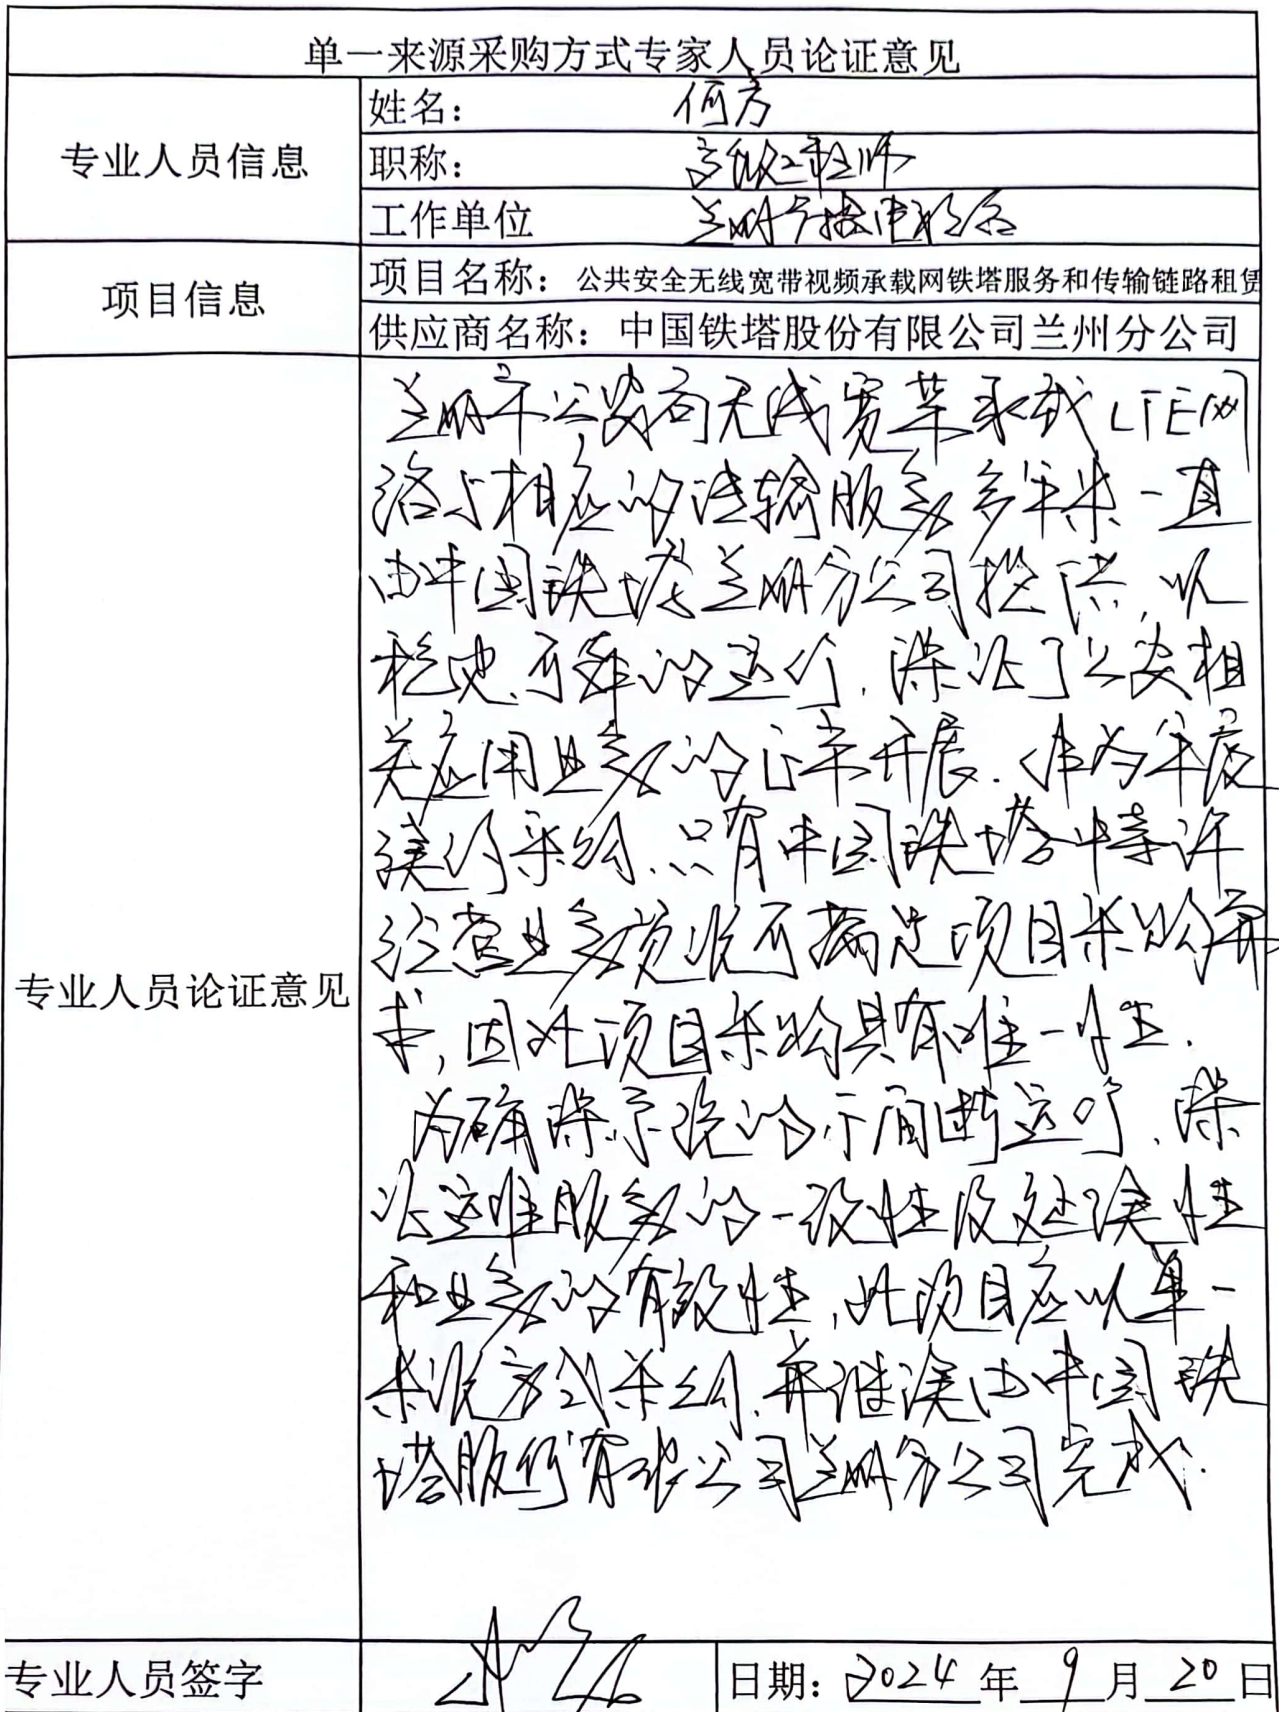 单一来源采购方式专家人员论证意见
专业人员信息
姓名： 何方
职称： 高级工程师
工作单位 兰州广播电视台
项目信息
项目名称：公共安全无线宽带视频承载网铁塔服务和传输链路租赁
供应商名称：中国铁塔股份有限公司兰州分公司
专业人员论证意见
兰州市公安局无线宽带承载LTE网
络与相应的传输服务多年来一直
由中国铁塔兰州分公司提供，以
稳定、可靠的运行，保证了公安相
关应用业务的正常开展．作为年度
续约采购，只有中国铁塔特许
经营业务资源可满足项目采购需
求，因此项目采购具有唯一性．
为确保系统的不间断运行，保
证运维服务的一致性及延续性
和业务的有效性，此项目应以单一
来源方式采购，并继续由中国铁
塔股份有限公司兰州分公司完成．
专业人员签字
日期：2024年9月20日